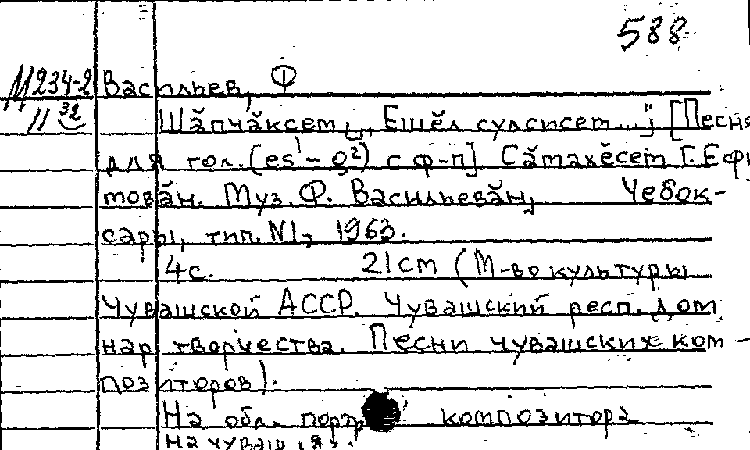 588
М234-2 Васильев, Ф
11 32 Шӑпчӑксет „Ешӗл сулсисет..."; [Песня
для гол. (es¹ – g²) с ф-п] Сӑмахӗсет Г. Ефи
мован. Муз. Ф. Васильевӑн, Чебок-
сары, тип. N1, 1963.
4с. 21cm (М-во культуры
Чувашской АССР. Чувашский респ. дом
нар творчества. Песни чувашских ком-
позиторов).
На обл. портр композитора
На чуваш. яз.